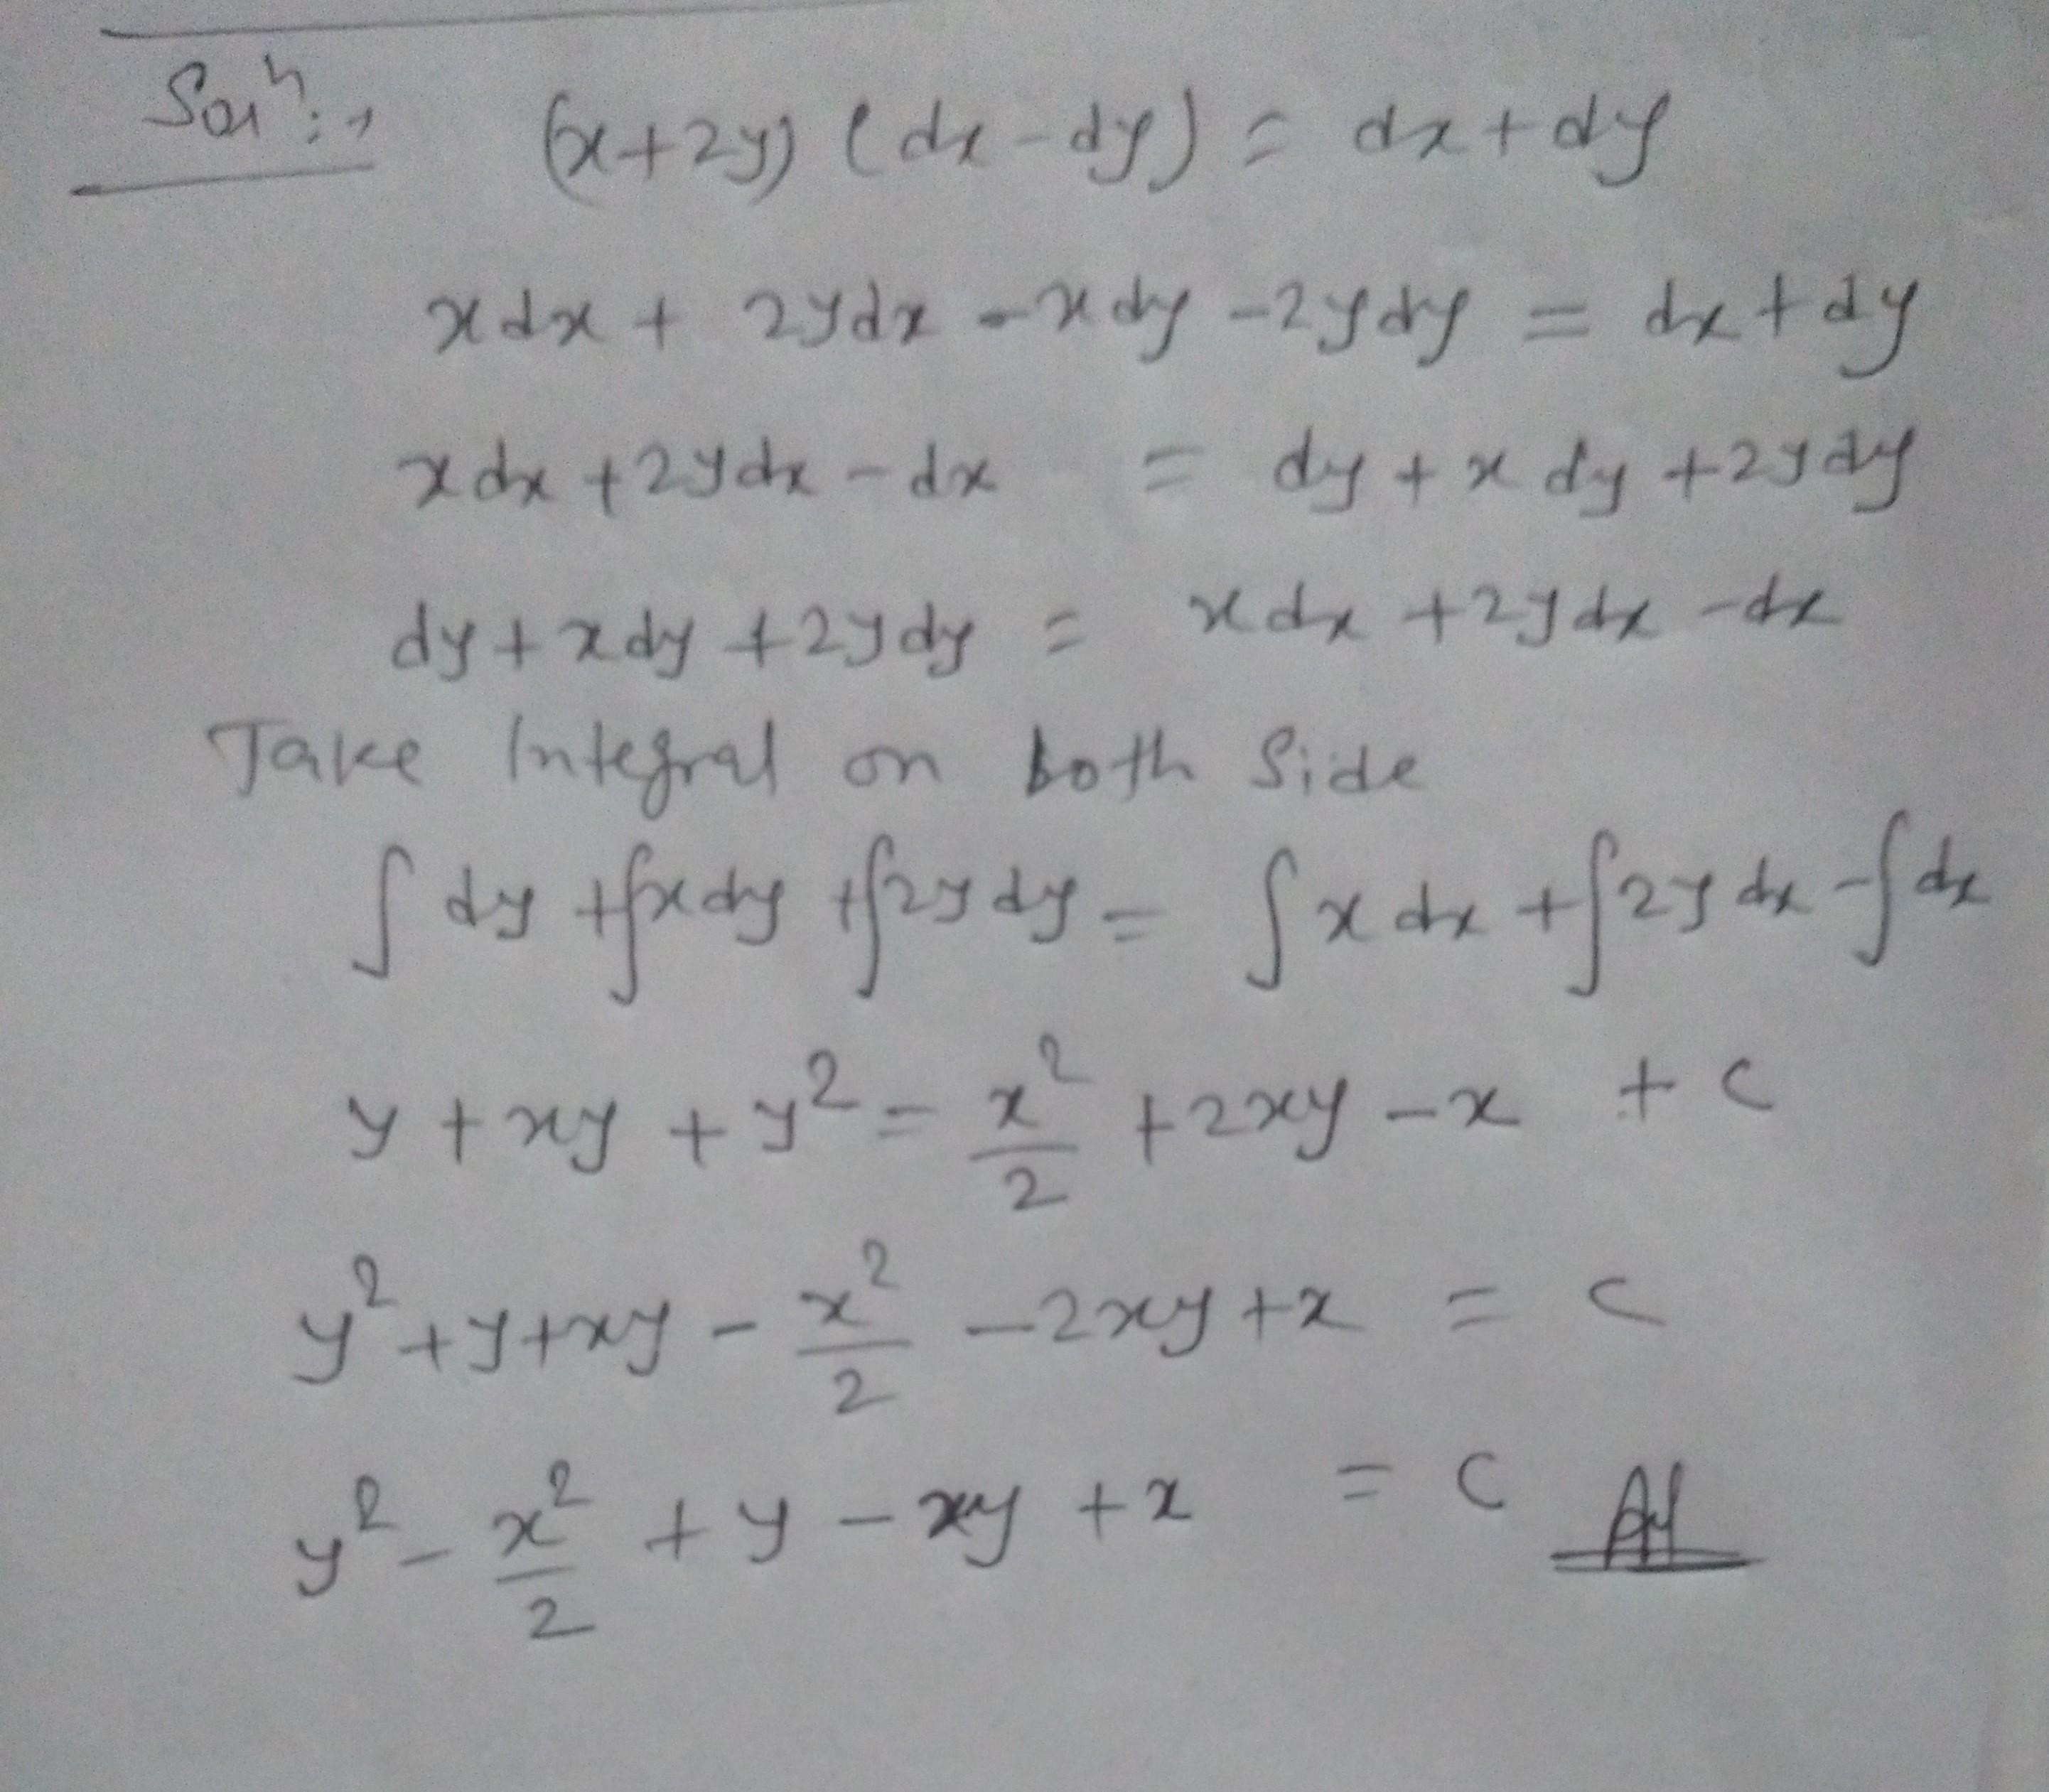 Solⁿ:→ (x+2y) (dx-dy) = dx+dy
xdx + 2ydx - xdy - 2ydy = dx + dy
xdx + 2ydx - dx = dy + xdy + 2ydy
dy + xdy + 2ydy = xdx + 2ydx - dx
Take Integral on both Side
∫dy + ∫xdy + ∫2ydy = ∫xdx + ∫2ydx - ∫dx
y + xy + y² = x²/2 + 2xy - x + c
y² + y + xy - x²/2 - 2xy + x = c
y² - x²/2 + y - xy + x = c